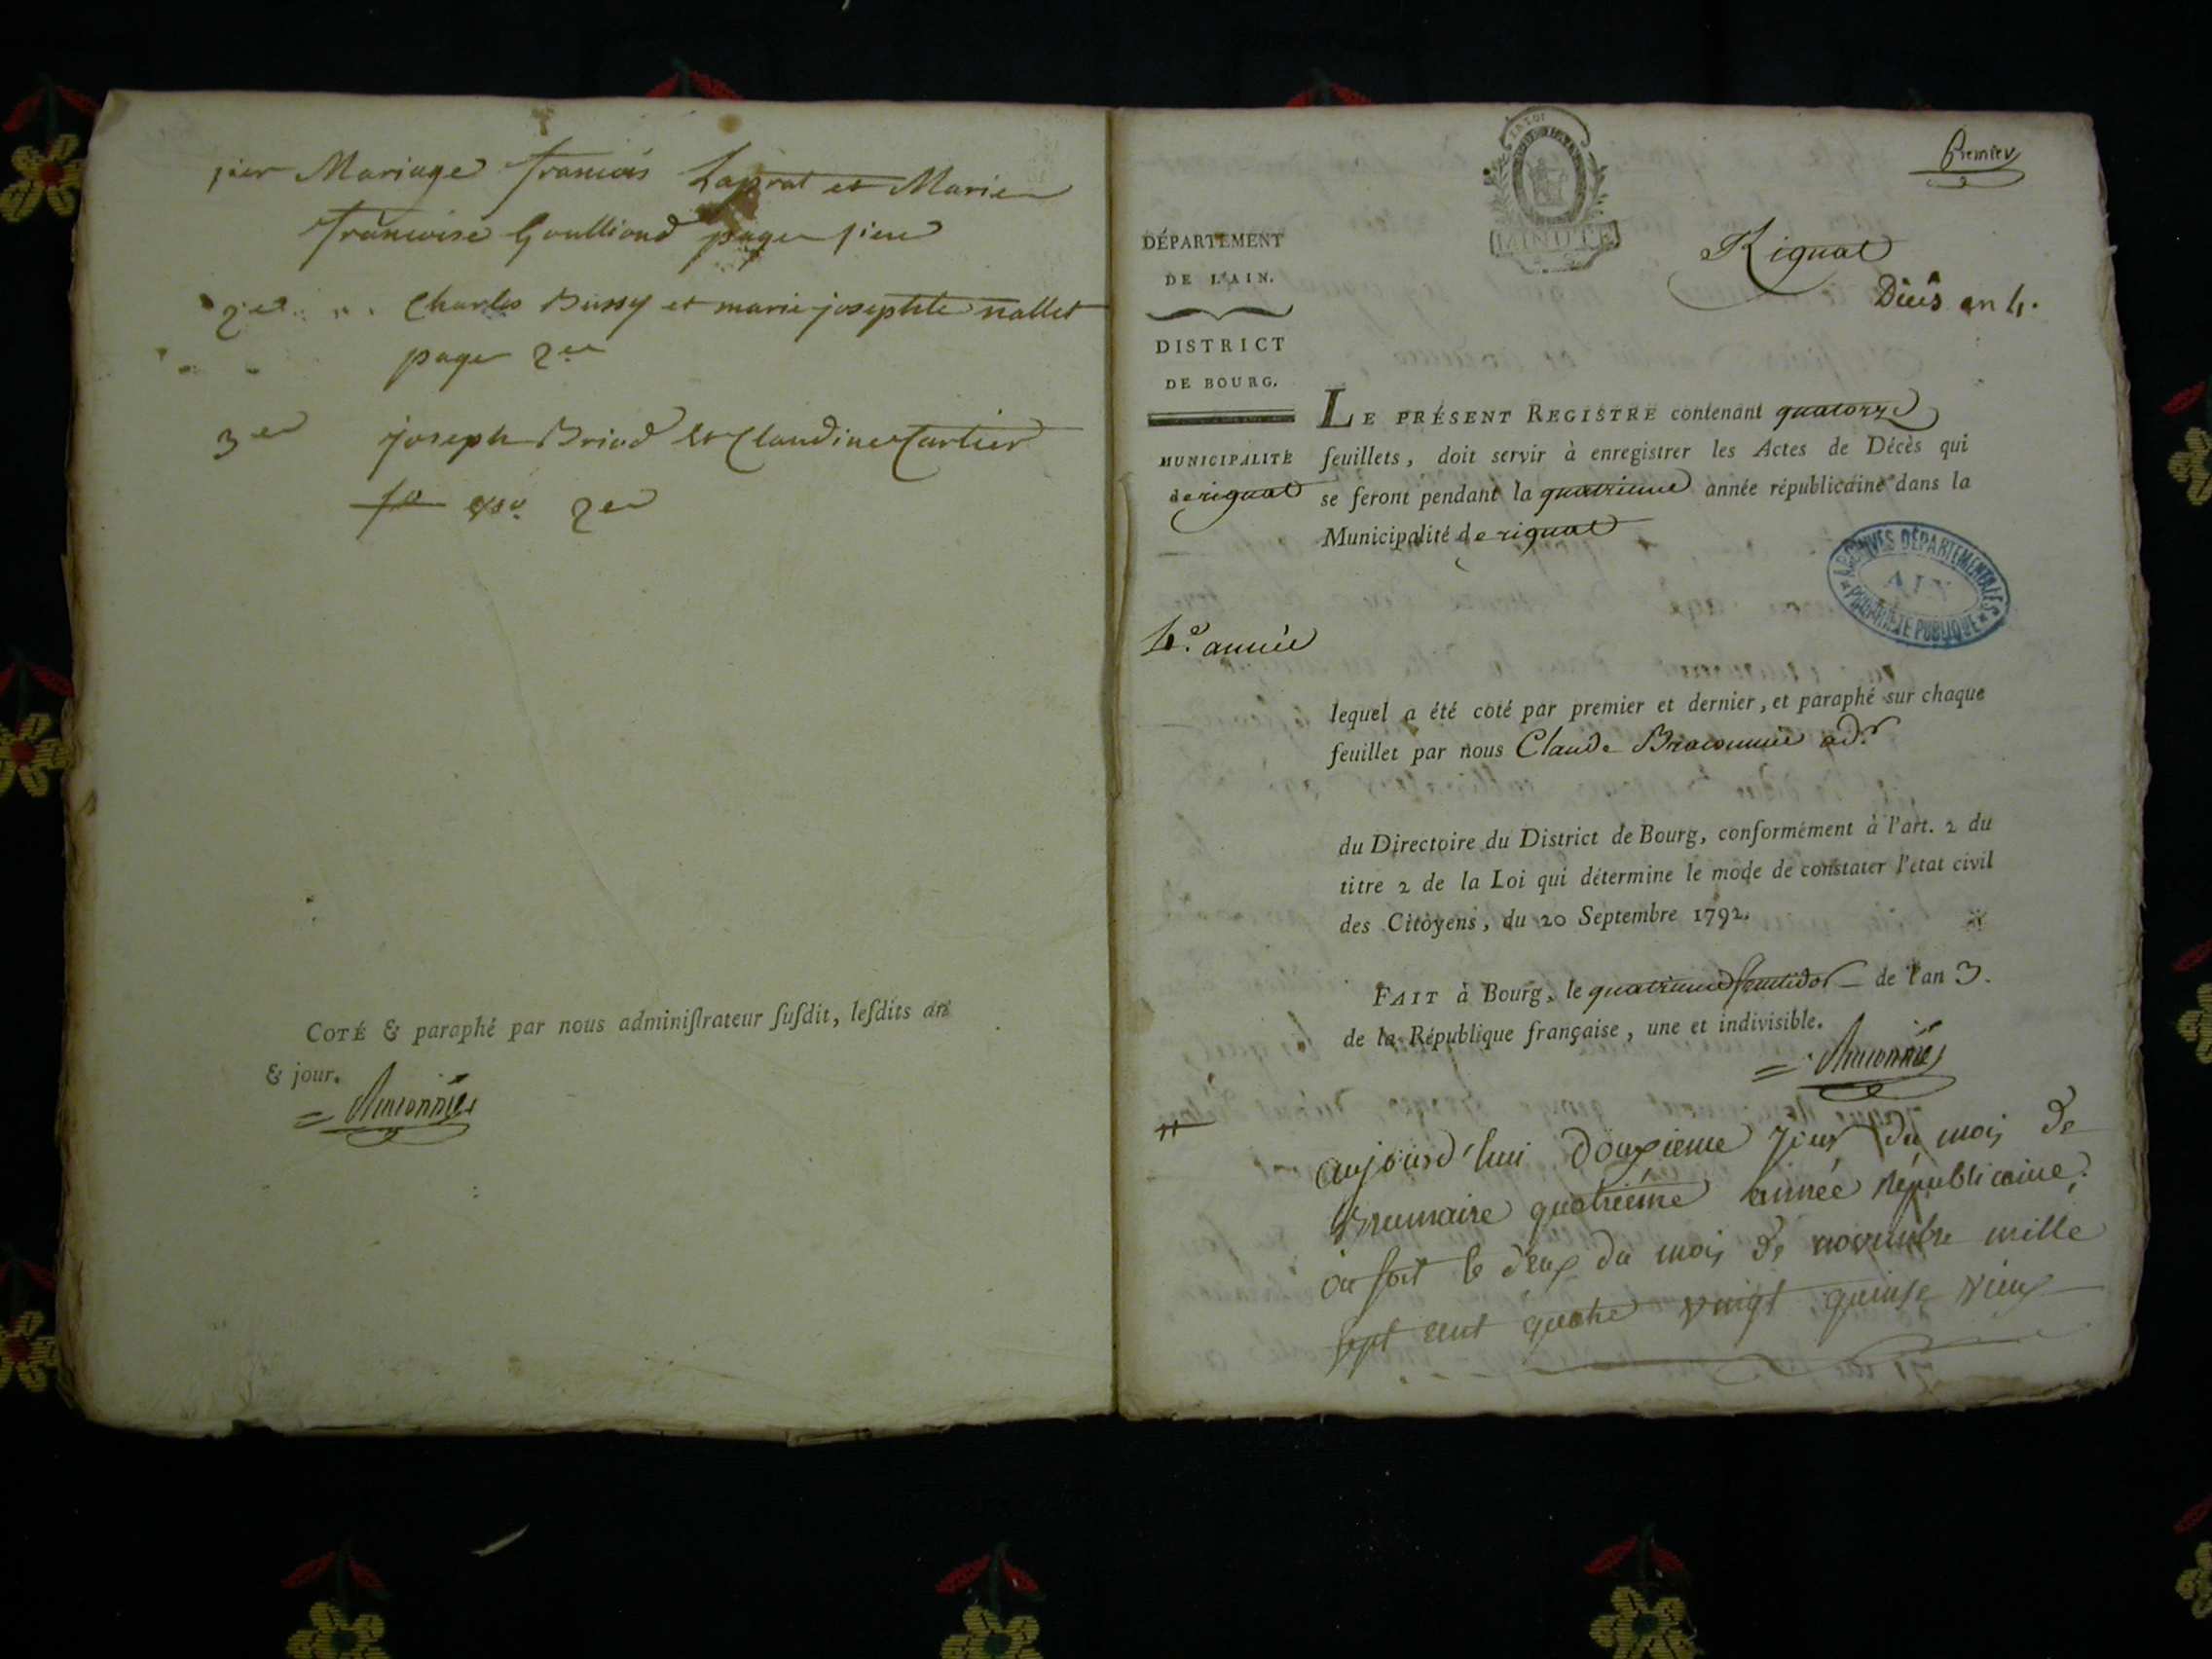 1ier Mariage françois Laprat et Marie
françoise Goulliond page 1iere
2er Charles Bussy et marie josephte nallet
page 2er
3er joseph Briod et Claudine Cartier
2er
COTÉ & paraphé par nous adminiſtrateur ſuſdit, leſdits an
& jour.
LA LOI
MINUTE
Premier
DÉPARTEMENT
DE L'AIN.
DISTRICT
DE BOURG.
MUNICIPALITÉ
de rignat
4e. année
Rignat
Décès an 4.
LE PRÉSENT REGISTRE contenant quatorze
feuillets, doit servir à enregistrer les Actes de Décès qui
se feront pendant la quatrieme année républicaine dans la
Municipalité de rignat
ARCHIVES DÉPARTEMENTALES
AIN
PROPRIÉTÉ PUBLIQUE
lequel a été coté par premier et dernier, et paraphé sur chaque
feuillet par nous Claude Braconnier adr
du Directoire du District de Bourg, conformément à l'art. 2 du
titre 2 de la Loi qui détermine le mode de constater l'état civil
des Citoyens, du 20 Septembre 1792.
FAIT à Bourg, le quatrieme fructidor de l'an 3.
de la République française, une et indivisible.
aujourd'hui douzieme jour du mois de
Brumaire quatriéme année républicaine,
ou soit le deux du mois de novembre mille
sept cent quatre vingt quinse vieux